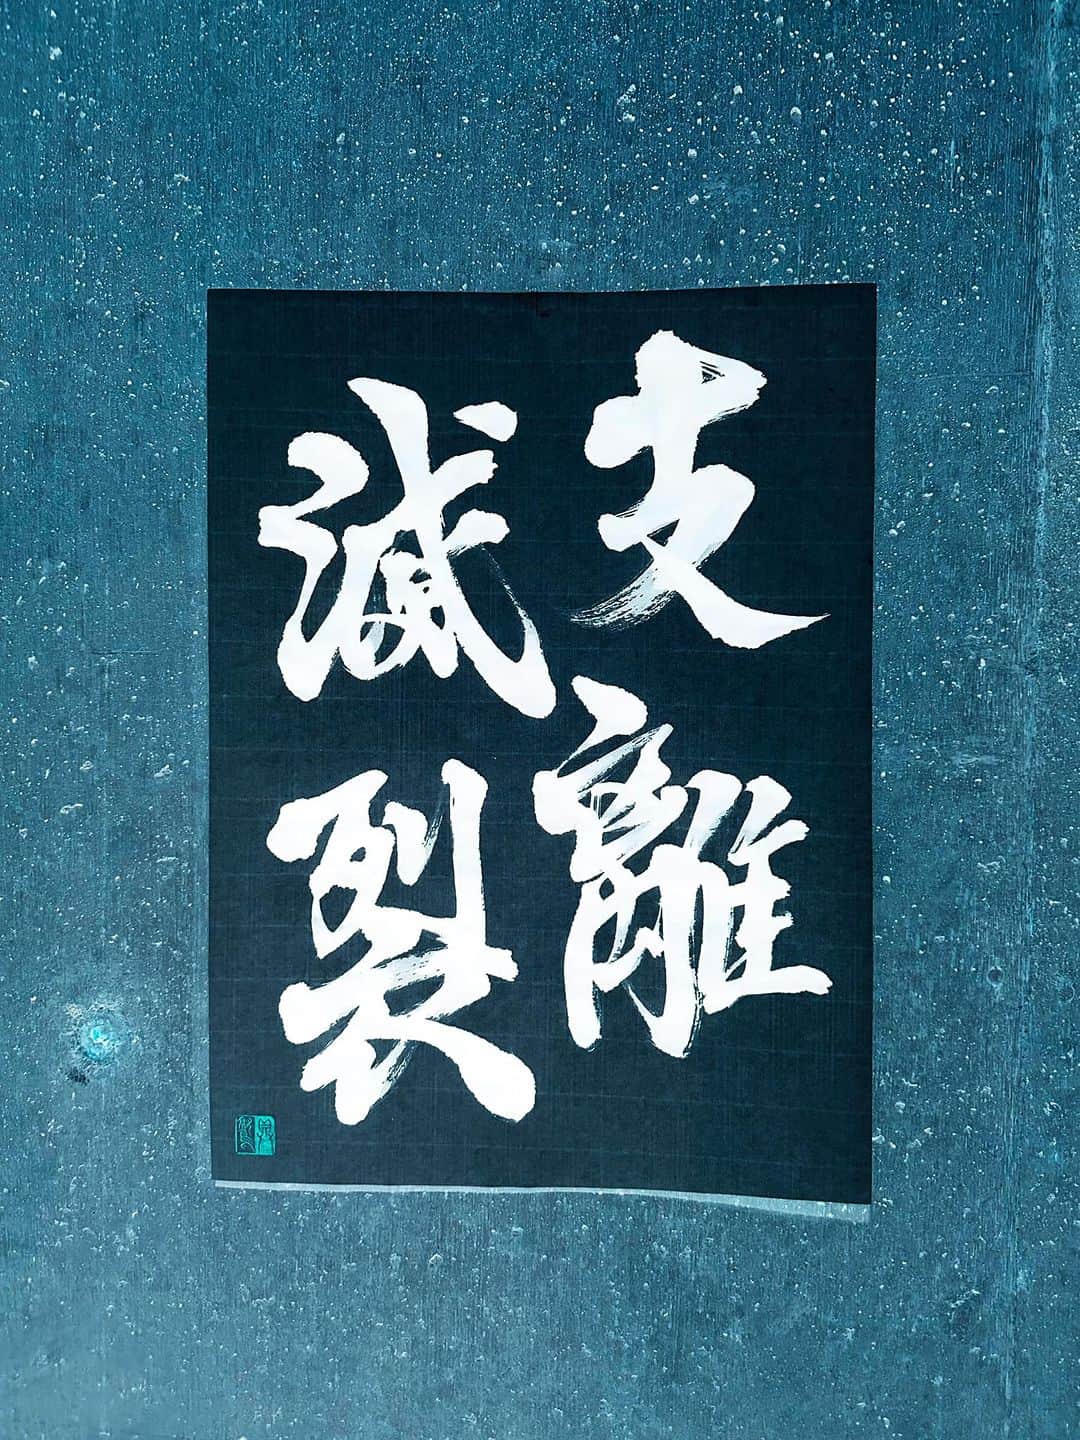 支離
滅裂